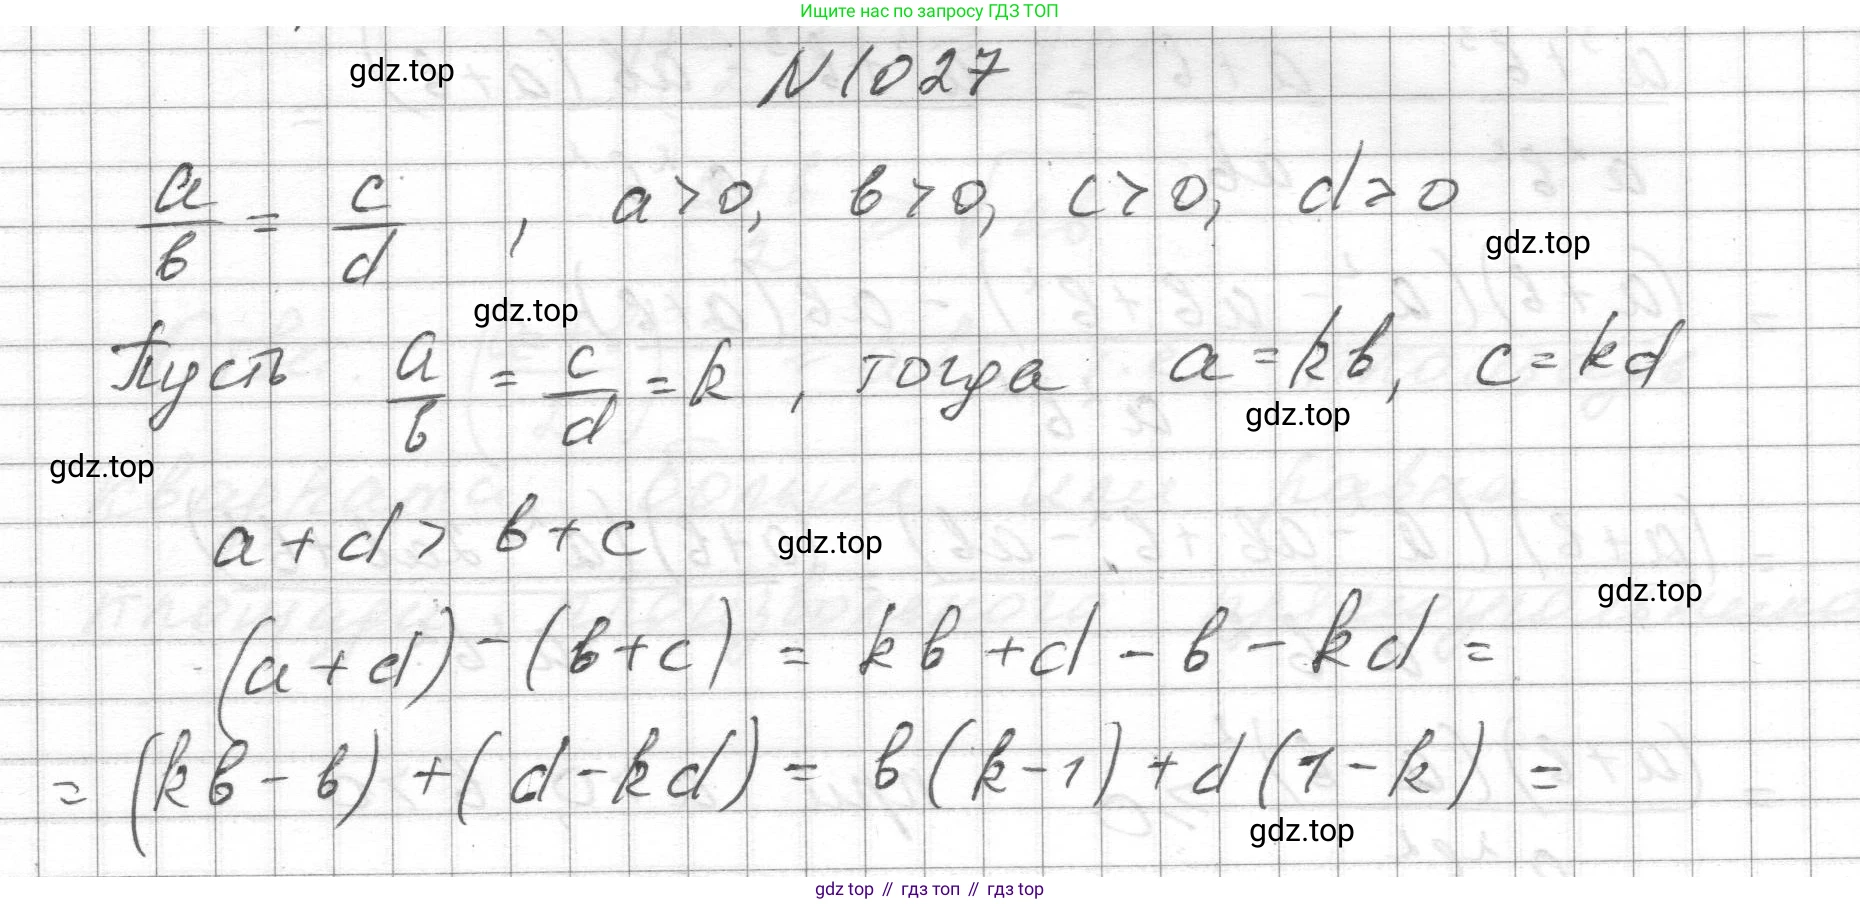 Ищите нас по запросу ГДЗ ТОП
gdz.top
N 1027
a/в = c/d , a>0, в>0, c>0, d>0
gdz.top
gdz.top
Пусть a/в = c/d = k , тогда a=kв, c=kd
gdz.top
gdz.top
a+d> в+c
gdz.top
gdz.top
(a+d)-(в+c) = kв+d-в-kd=
=(kв-в)+(d-kd)= в(k-1)+d(1-k)=
gdz.top
gdz top // гдз топ // гдз top